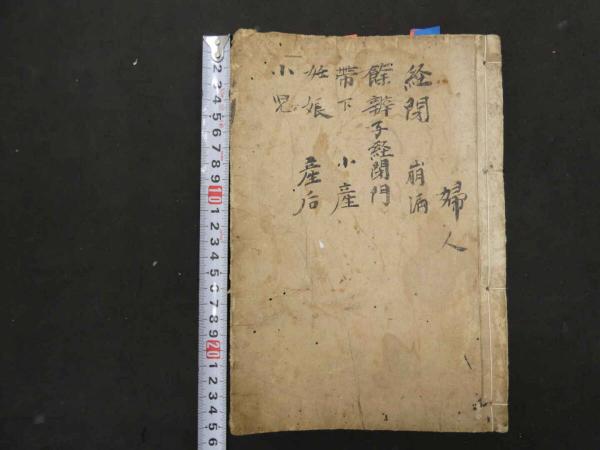 婦人
経閉 崩漏
餘辨子経閉門
帶下 小産
妊娠 産后
小児
2 3 4 5 6 7 8 9 10 1 2 3 4 5 6 7 8 9 20 1 2 3 4 5 6